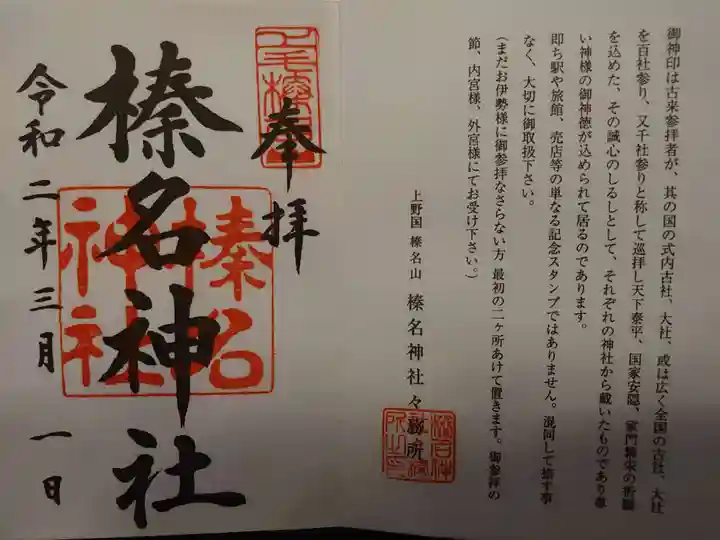 御神印は古来参拝者が、其の国の式内古社、大社、或は広く全国の古社、大社
を百社参り、又千社参りと称して巡拝し天下泰平、国家安隠、家門繁栄の祈願
を込めた、その誠心のしるしとして、それぞれの神社から戴いたものであり尊
い神様の御神徳が込められて居るのであります。
即ち駅や旅館、売店等の単なる記念スタンプではありません。混同して捺す事
なく、大切に御取扱下さい。
(まだお伊勢様に御参拝なさらない方 最初の二ヶ所あけて置きます。御参拝の
節、内宮様、外宮様にてお受け下さい。)
上野国 榛名山 榛名神社々務所
奉拝
榛名神社
令和二年三月一日
榛名
神社